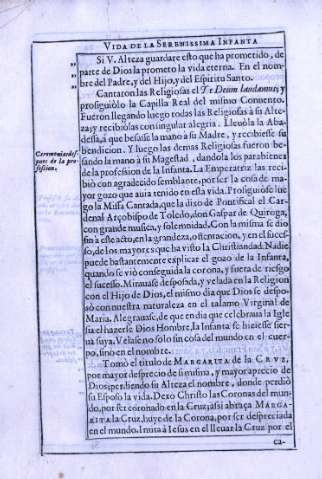 VIDA DE LA SERENISSIMA INFANTA
„ Si V. Alteza guardare esto que ha prometido, de
„ parte de Dios la prometo la vida eterna. En el nom-
„ bre del Padre, y del Hijo, y del Espiritu Santo.
Cantaron las Religiosas el Te Deum laudamus, y
prosiguiòlo la Capilla Real del mismo Convento.
Fueron llegando luego todas las Religiosas à su Alte-
za, y recibiolas con singular alegria. Llevòla la Aba-
dessa, à que besasse la mano à su Madre, y recibiesse su
bendicion. Y luego las demas Religiosas fueron be-
Ceremonias des-
pues de la pro-
fession.
sando la mano à su Magestad, dandola los parabienes
de la profession de la Infanta. La Emperatriz las reci-
biò con agradecido semblante, por ser la cosa de ma-
yor gozo que auia tenido en esta vida. Prosiguiose lue
go la Missa Cantada, que la dixo de Pontifical el Car-
denal Arçobispo de Toledo, don Gaspar de Quiroga,
con grande musica, y solemnidad. Con la misma se dio
fin à este acto, en la grandeza, ostentacion, y en el suces-
so, de los mayores que ha visto la Christiandad. Nadie
puede bastantemente explicar el gozo de la Infanta,
quando se viò conseguida la corona, y fuera de riesgo
el sucesso. Mirauase desposada, y velada en la Religion
con el Hijo de Dios, el mismo dia que Dios se despo-
sò con nuestra naturaleza en el talamo Virginal de
Maria. Alegrauase, de que en dia que celebraua la Igle
sia el hazerse Dios Hombre, la Infanta se hiziesse sier-
ua suya. Velase no solo sin cosa del mundo en el cuer-
po, sino en el nombre.
Tomò el titulo de MARGARITA de la CRVZ,
por mayor desprecio de si misma, y mayor aprecio de
Dios; perdiendo su Alteza el nombre, donde perdiò
su Esposo la vida. Dexo Christo las Coronas del mun-
do, por ser coronado en la Cruz; assi abraça MARGA-
RITA la Cruz, huye de la Corona, por ser despreciada
en el mundo. Imita à Iesus en el lleuar la Cruz por el
ca-